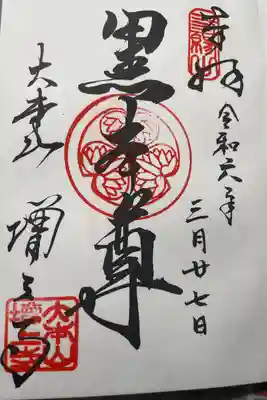 奉拝
令和六年
三月廿七日
黒本尊
大本山
増上寺
三縁山
大本山増上寺